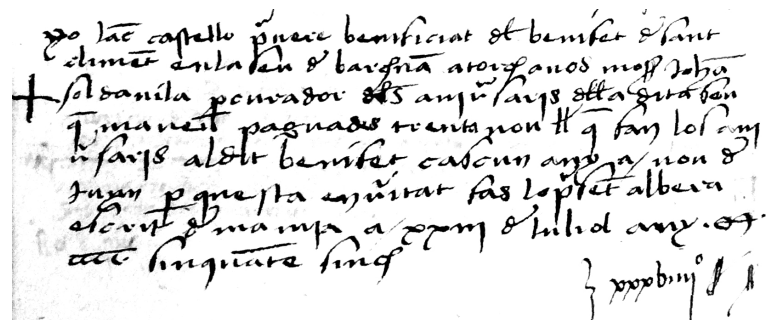 yo Jac castello prevere beneficiat del benifet de sant
climent en la seu de barchna atorch a vos mossen Johan
soldavila procurador dels anivrsaris de la dita seu
que maveu pagnades trenta nou ll que fan los ani
vrsaris al dit benifet cascun any a nou de
Juny per que sta en vritat fas lo present albera
escrit de ma mia a xxiii de Juliol any
sinquante sinch
xxxbiiiiº